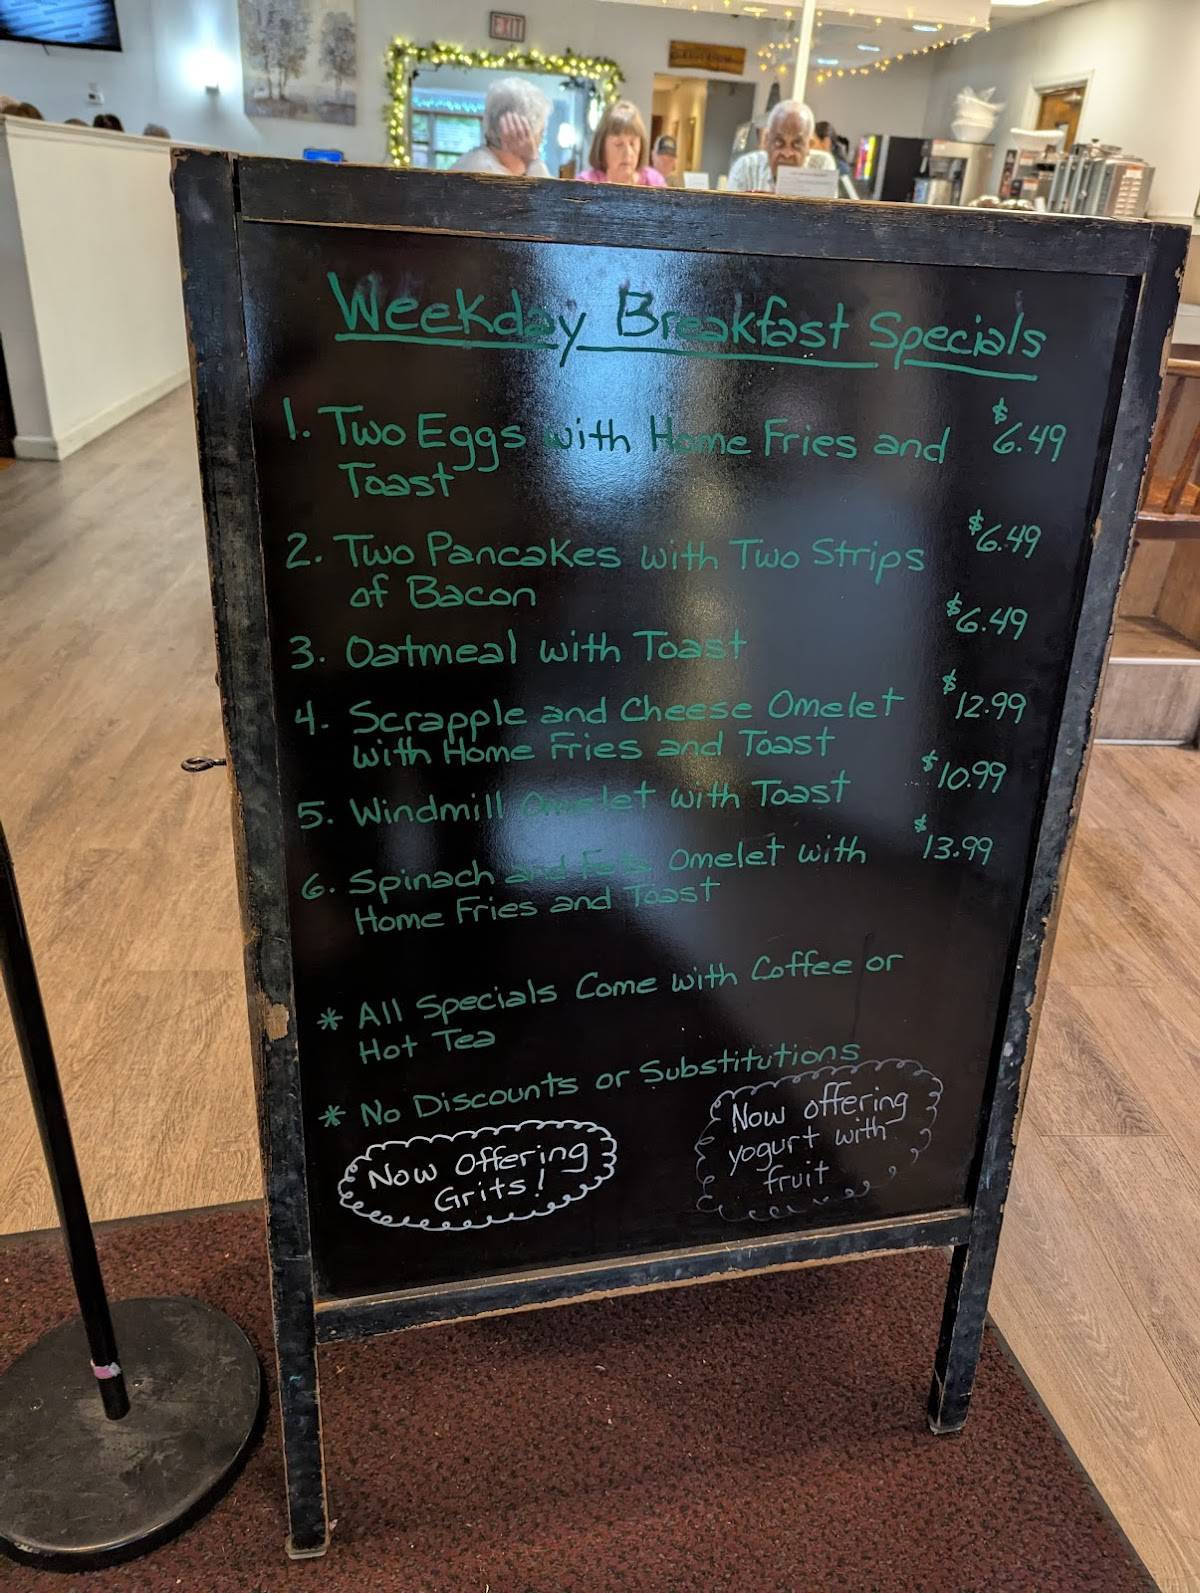 EXIT
Weekday Breakfast Specials
1. Two Eggs with Home Fries and $6.49
Toast
2. Two Pancakes with Two Strips $6.49
of Bacon
3. Oatmeal with Toast $6.49
4. Scrapple and Cheese Omelet $12.99
with Home Fries and Toast
5. Windmill Omelet with Toast $10.99
6. Spinach and Feta Omelet with $13.99
Home Fries and Toast
* All Specials Come with Coffee or
Hot Tea
* No Discounts or Substitutions
Now Offering
Grits!
Now offering
yogurt with
fruit